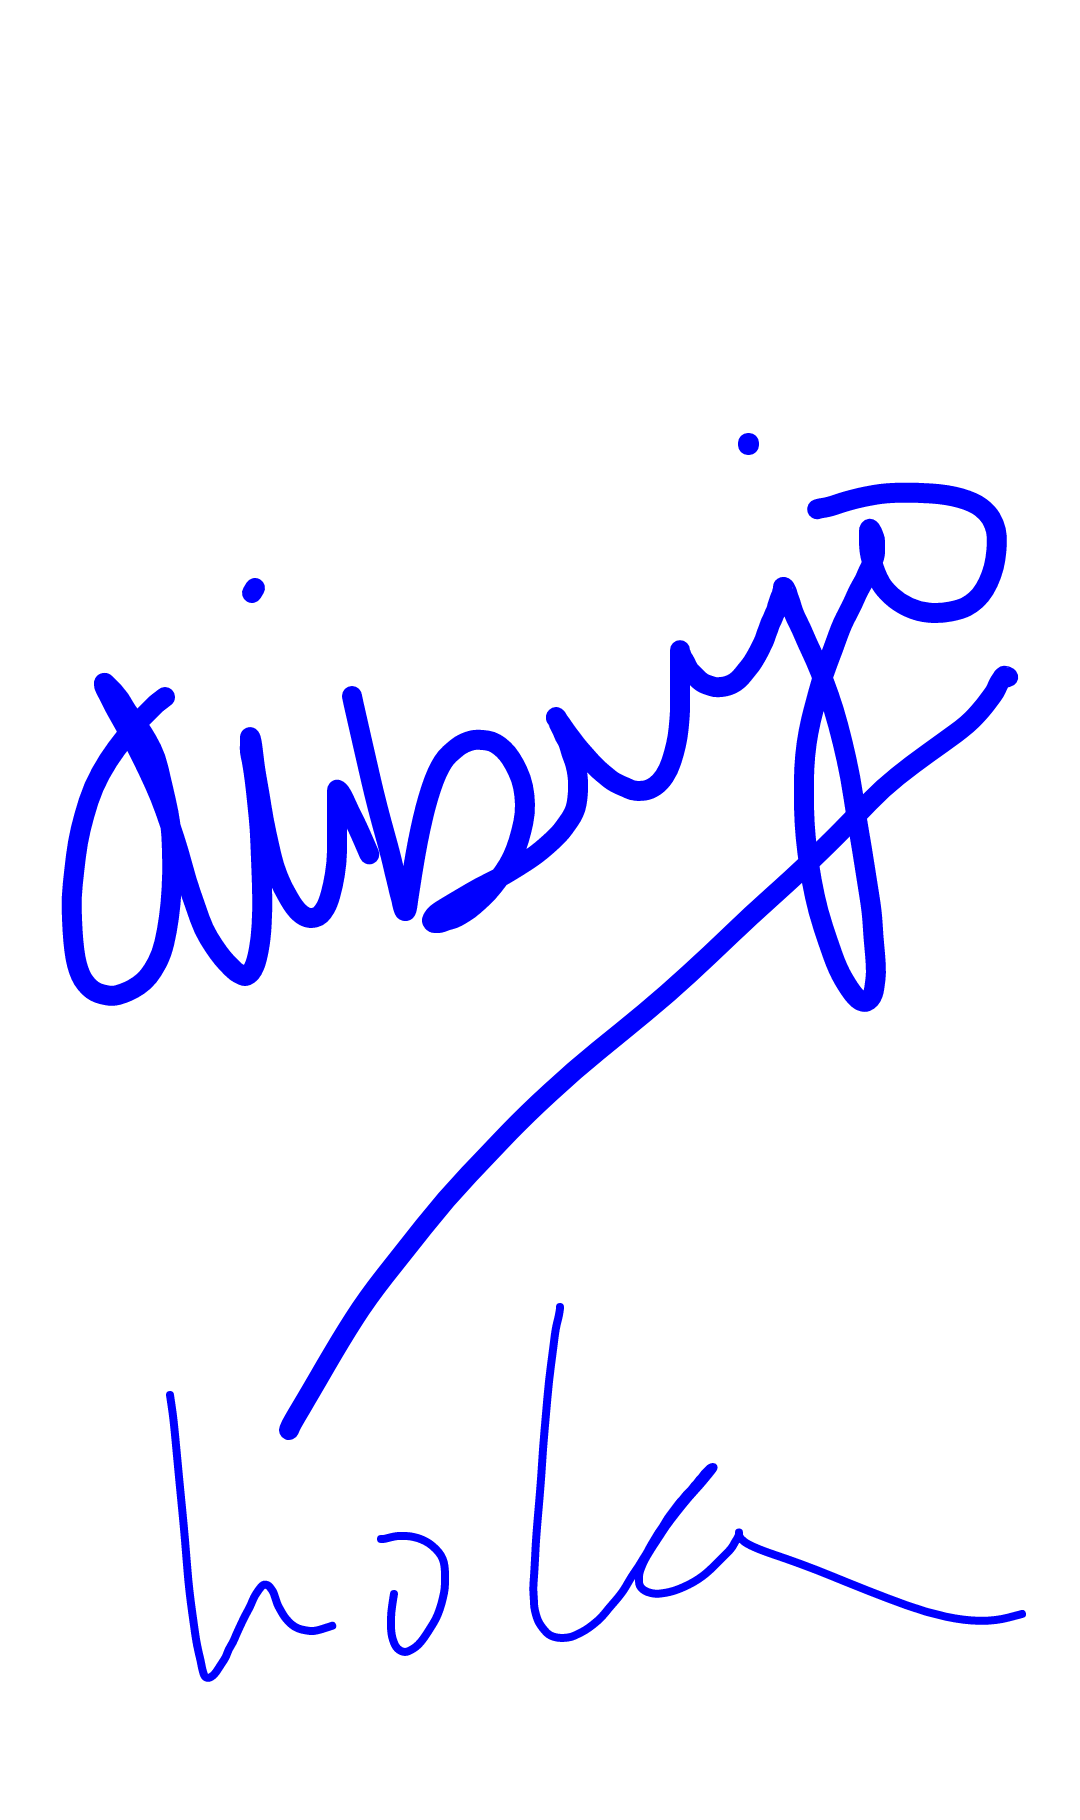 dibujo
hola